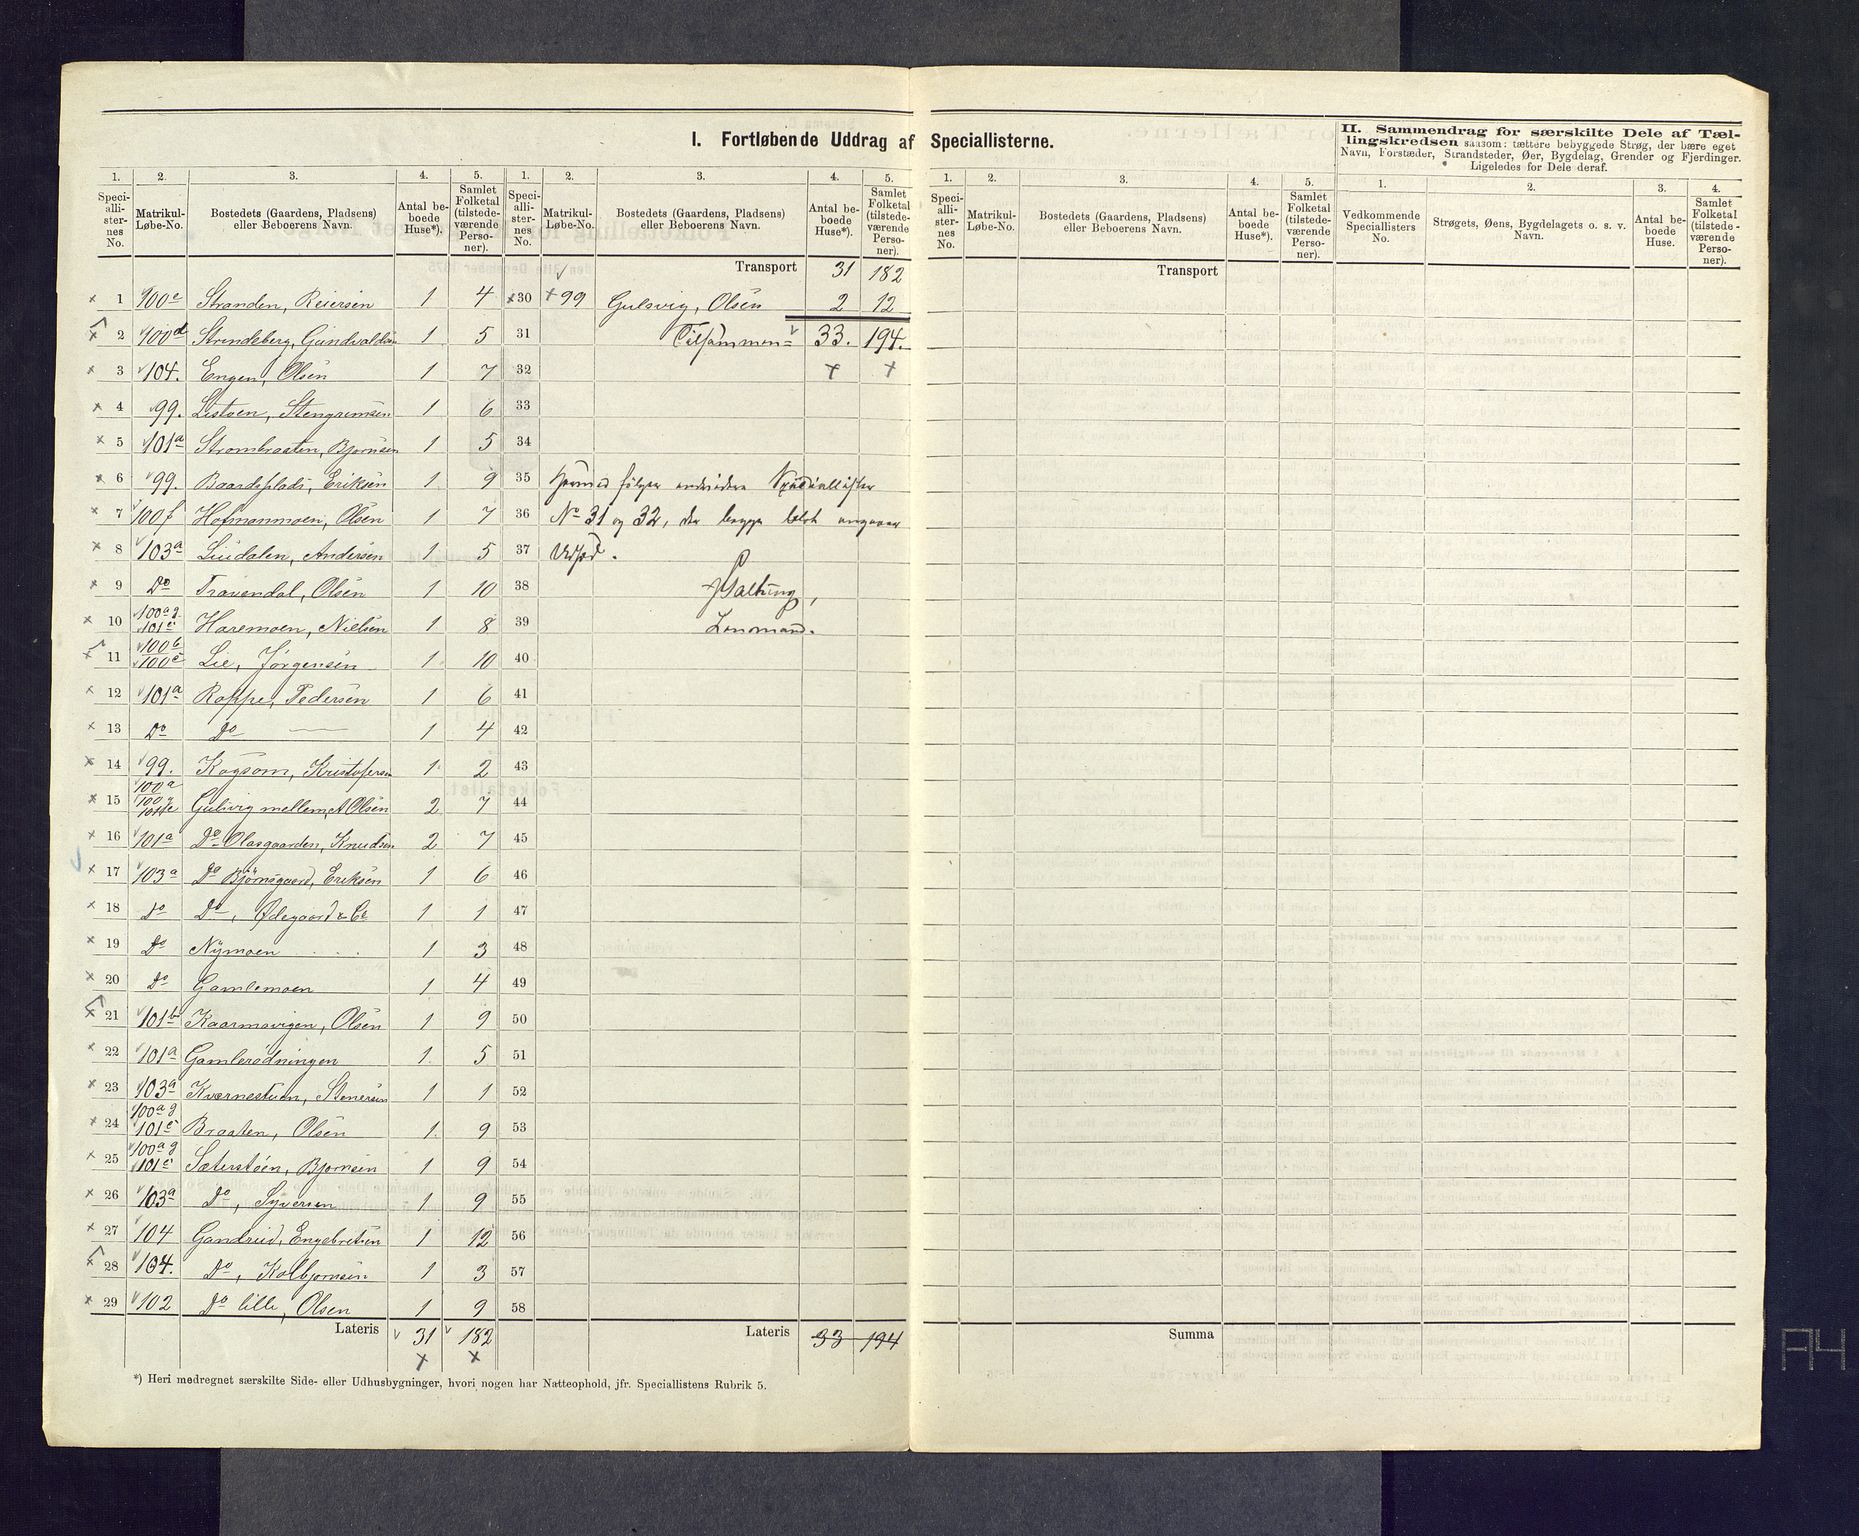 I. Fortløbende Uddrag af Speciallisterne.
II. Sammendrag for særskilte Dele af Tæl-
lingskredsen saasom: tættere bebyggede Strøg, der bære eget
Navn, Forstæder, Strandsteder, Øer, Bygdelag, Grender og Fjerdinger.
Ligeledes for Dele deraf.
1. 2. 3. 4. 5. 1. 2. 3. 4. 5. 1. 2. 3. 4. 5. 1. 2. 3. 4.
Speciallisternes No. Matrikul-Løbe-No. Bostedets (Gaardens, Pladsens) eller Beboerens Navn. Antal beboede Huse*). Samlet Folketal (tilstedeværende Personer).
Speciallisternes No. Matrikul-Løbe-No. Bostedets (Gaardens, Pladsens) eller Beboerens Navn. Antal beboede Huse*). Samlet Folketal (tilstedeværende Personer).
Speciallisternes No. Matrikul-Løbe-No. Bostedets (Gaardens, Pladsens) eller Beboerens Navn. Antal beboede Huse*). Samlet Folketal (tilstedeværende Personer).
Vedkommende Speciallisters No. Strøgets, Øens, Bygdelagets o. s. v. Navn. Antal beboede Huse. Samlet Folketal (tilstedeværende Personer).
1 100e Stranden, Reiersen 1 4
2 100d Strandeberg, Gundvaldsen 1 5
3 104. Engen, Olsen 1 7
4 99. Listøen, Stengrimsen 1 6
5 101a Strombraaten, Bjørnsen 1 5
6 99. Baardsplads, Eriksen 1 9
7 100f Hofmanmoen, Olsen 1 7
8 103a Liidalen, Andersen 1 5
9 Do Travendal, Olsen 1 10
10 100a g 101c Haremoen, Nielsen 1 8
11 100b 100c Lie, Jørgensen 1 10
12 101a Roppe, Pedersen 1 6
13 Do Do 1 4
14 99. Kogsom, Kristofersen 1 2
15 100a 100g Gulsvig mellem, A Olsen 2 7
16 101a Do Olasgaarden, Knudsen 2 7
17 103a Do Bjørnsgaard, Eriksen 1 6
18 Do Do, Ødegaard 1 1
19 Do Nymoen 1 3
20 Do Gamlemoen 1 4
21 101b Kaarmovigen, Olsen 1 9
22 101a Gamlerødningen 1 5
23 103a Kværnestuen, Stenersen 1 1
24 100a g 101c Braaten, Olsen 1 9
25 100a g 101c Sæterstøen, Bjørnsen 1 9
26 103a Do, Syversen 1 9
27 104 Gandrud, Engebretsen 1 12
28 104. Do, Kolbjørnsen 1 3
29 102 Do lille, Olsen 1 9
Lateris 31 182
Transport 31 182
30 99 Gulsvig, Olsen 2 12
31 Tilsammen = 33. 194.
32
33
34
35 Hermed følger Speciallister
36 No 31 og 32, der begge
37
38
39 Lensmand.
40
41
42
43
44
45
46
47
48
49
50
51
52
53
54
55
56
57
58
Lateris 33 194
Transport
Summa
*) Heri medregnet særskilte Side- eller Udhusbygninger, hvori nogen har Natteophold, jfr. Speciallistens Rubrik 5.
A4